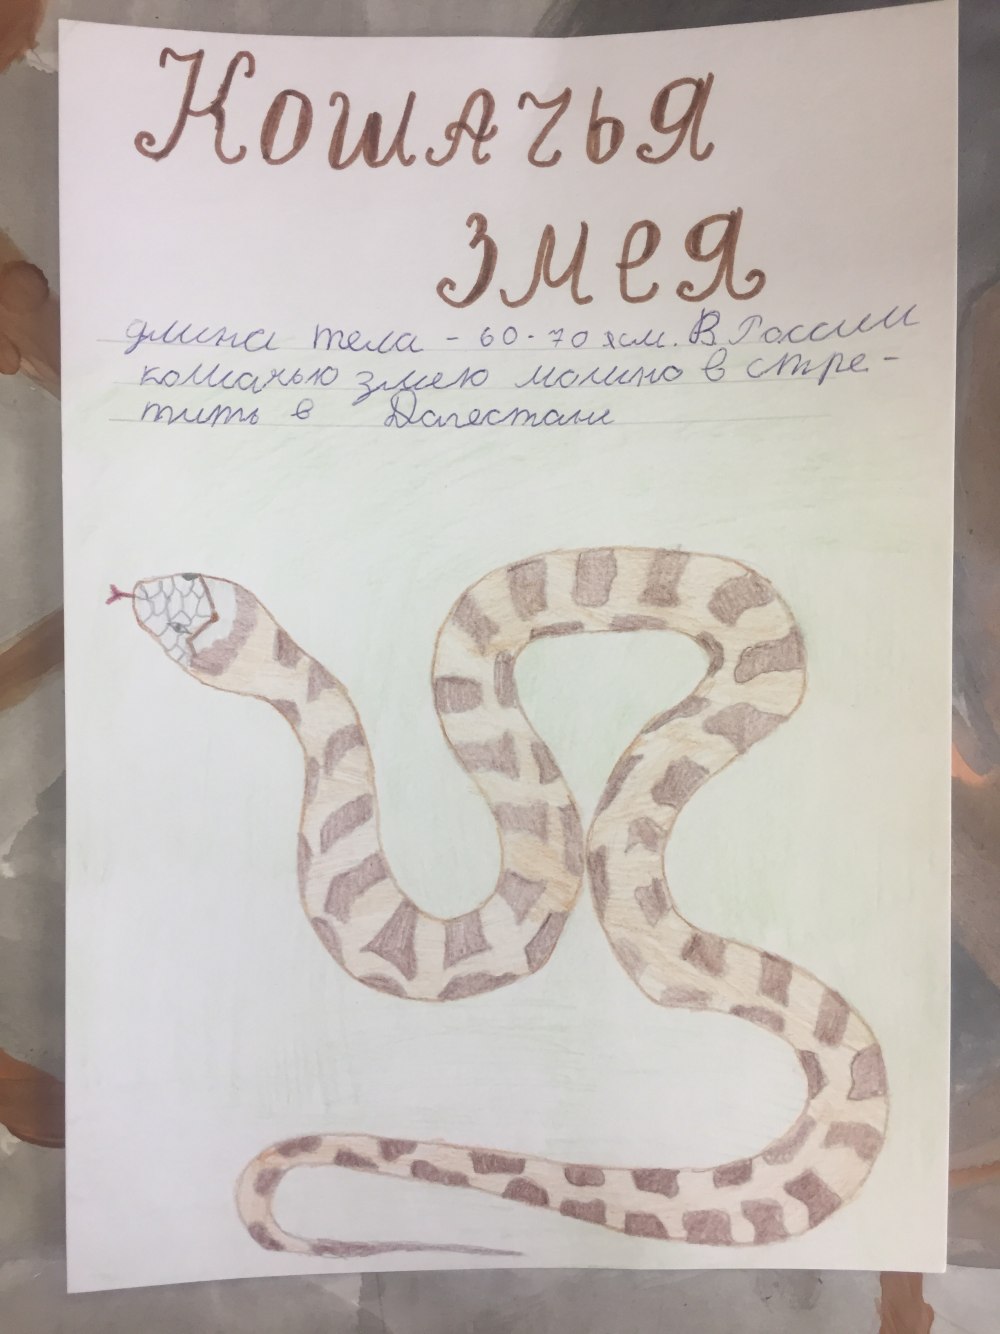 Кошачья
змея
длина тела - 60-70 см. В России
кошачью змею можно в стре-
тить в Дагестане